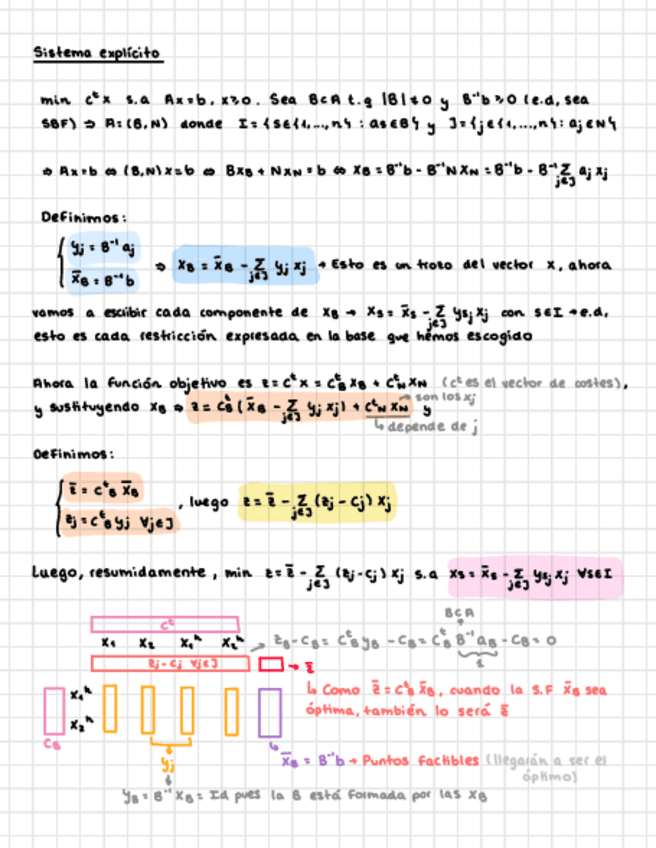 Sistema explícito
min cᵗx s.a Ax=b, x≥0. Sea B⊂A t.q |B|≠0 y B⁻¹b≥0 (e.d, sea
SBF) ⇒ A=(B,N) donde I={s∈{1,...,n}: as∈B} y J={j∈{1,...,n}: aj∈N}
⇒ Ax=b ⇔ (B,N)x=b ⇔ BxB + NxN = b ⇔ xB = B⁻¹b - B⁻¹NxN = B⁻¹b - B⁻¹ Σ j∈J aj xj
Definimos:
yj = B⁻¹ aj
x̄B = B⁻¹b
⇒ xB = x̄B - Σ j∈J yj xj → Esto es un trozo del vector x, ahora
vamos a escribir cada componente de xB → xs = x̄s - Σ j∈J ysj xj con s∈I → e.d,
esto es cada restricción expresada en la base que hemos escogido
Ahora la función objetivo es z = cᵗx = cᵗB xB + cᵗN xN (cᵗ es el vector de costes),
son los xj
y sustituyendo xB ⇒ z = cᵗB (x̄B - Σ j∈J yj xj) + cᵗN xN y
↳ depende de j
Definimos:
z̄ = cᵗB x̄B
zj = cᵗB yj ∀j∈J
, luego z = z̄ - Σ j∈J (zj - cj) xj
Luego, resumidamente, min z = z̄ - Σ j∈J (zj - cj) xj s.a xs = x̄s - Σ j∈J ysj xj ∀s∈I
B⊂A
cᵗ
x₁ x₂ x₁ʰ x₂ʰ → zB - cB = cᵗB yB - cB = cᵗB B⁻¹ aB - cB = 0
zj - cj ∀j∈J → z̄
↳ Como z̄ = cᵗB x̄B, cuando la S.F x̄B sea
óptima, también lo será z̄
x₁ʰ
x₂ʰ
cB
yj
x̄B = B⁻¹b → Puntos factibles (llegarán a ser el
óptimo)
yB = B⁻¹ xB = Id pues la B está formada por las xB